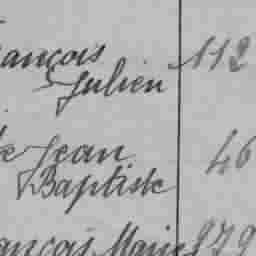 ançois 112
Julien
te Jean 46
Baptiste
ançois Marie 879